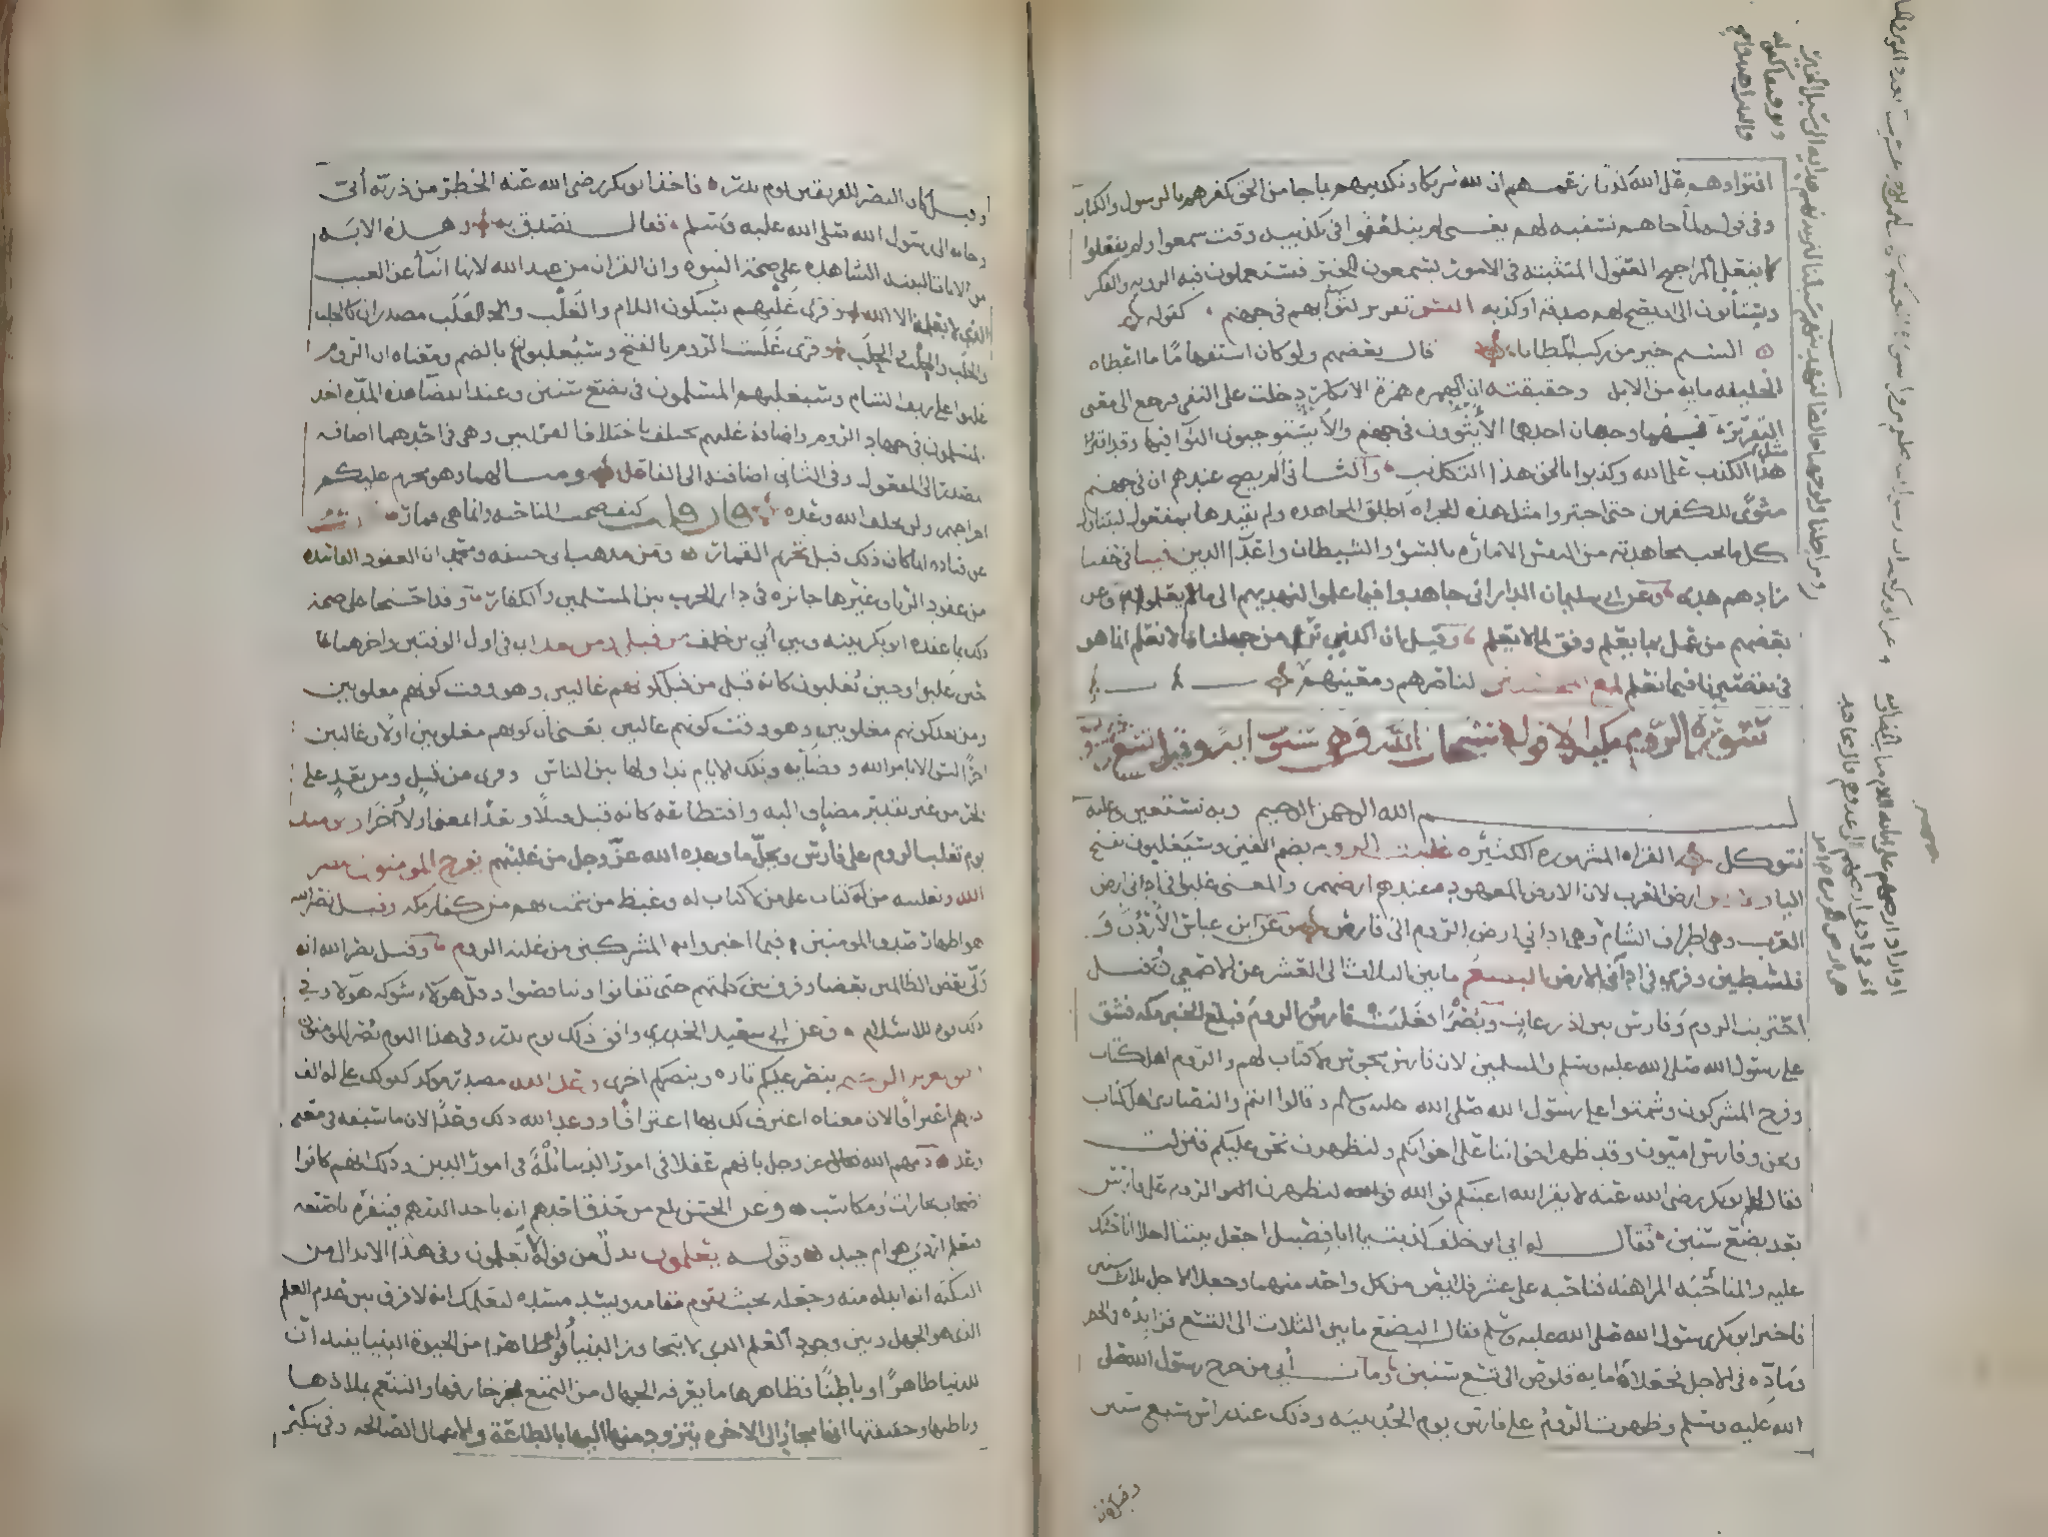 افتراؤهم على الله كذبا زعمهم ان لله شريكا وتكذيبهم بما جا من الحق كفرهم بالرسول والكتاب
وفي قوله لما جاهم تسفيه لهم يعني لم يتلعثموا في تكذيبه وقت سمعوا ولم يفعلوا
كما يفعل المراجيح العقول المتثبتة في الامور يسمعون الخبر فيستعملون فيه الروية والفكر
ويستأنون الى ان يصح لهم صدقه او كذبه اليس تقرير لثوائهم في جهنم كقوله
الستم خير من ركب المطايا قال بعضهم ولو كان استفهاما ما اعطاه
الخليفه مايه من الابل وحقيقته ان الهمزه همزة الانكار دخلت على النفي فرجع الى معنى
التقرير فهما وجهان احدهما الا يثوون في جهنم والا يستوجبون الثوا فيها وقد افتروا مثل
هذا الكذب على الله وكذبوا بالحق هذا التكذيب والثاني الم يصح عندهم ان في جهنم
مثوى للكفرين حتى اجتروا مثل هذه الجراه اطلق المجاهده ولم يقيدها بمفعول ليتناول
كل ما يجب مجاهدته من النفس الاماره بالسو والشيطان واعدا الدين فينا في حقنا
زادهم هدى وعن ابي سليمان الداراني جاهدوا فيما علموا لنهدينهم الى ما لم يعلموا وعن
بعضهم من عمل بما يعلم وفق لما لا يعلم وقيل ان الذي نرى من جهلنا بما لا نعلم انما هو
في تقصيرنا فيما نعلم لمع المحسنين لناصرهم ومعينهم
سورة الروم مكية الا قوله فسبحان الله وهي ستون اية وقيل تسع
الله الرحمن الرحيم وبه نستعين وعليه
نتوكل القراه المشهوره الكثيره غلبت الروم بضم الغين وسيغلبون بفتح
اليا ارض العرب لان الارض المعهوده عند العرب ارضهم والمعنى غلبوا في ادنى ارض
العرب وهي اطراف الشام وهي اداني ارض الروم الى فارس وعن ابن عباس الاردن و
فلسطين وقرئ في اداني الارض البضع ما بين الثلاث الى العشر عن الاصمعي وقيل
احتربت الروم وفارس بين اذرعات وبصرا فغلبت فارس الروم فبلغ الخبر مكه فشق
على رسول الله صلى الله عليه وسلم والمسلمين لان فارس مجوس لا كتاب لهم والروم اهل كتاب
وفرح المشركون وشمتوا على رسول الله صلى الله عليه وسلم وقالوا انتم والنصارى اهل كتاب
ونحن وفارس اميون وقد ظهر اخواننا على اخوانكم ولنظهرن نحن عليكم فنزلت
فقال لهم ابو بكر رضي الله عنه لا يقر الله اعينكم فوالله لتظهرن الروم على فارس
بعد بضع سنين فقال له ابي ابن خلف كذبت يا ابا فضيل اجعل بيننا اجلا اناحبك
عليه والمناحبه المراهنه فناحبه على عشر قلائص من كل واحد منهما وجعلا الاجل ثلاث سنين
فاخبر ابو بكر رسول الله صلى الله عليه وسلم فقال البضع ما بين الثلاث الى التسع فزايده في الخطر
وماده في الاجل فجعلاها مايه قلوص الى تسع سنين ومات ابي من جرح رسول الله صلى
الله عليه وسلم وظهرت الروم على فارس يوم الحديبيه وذلك عند راس سبع سنين
وقيل كان
وقيل كان النصر للفريقين يوم بدر فاخذ ابو بكر رضي الله عنه الخطر من ذرية ابي
وجا به الى رسول الله صلى الله عليه وسلم فقال تصدق به وهذه الايه
من الايات البينه الشاهده على صحة النبوه وان القران من عند الله لانها انبأ عن الغيب
الذي لا يعلمه الا الله وقرئ غلبهم بسكون اللام والغلب والغلب مصدران كالجلب
والجلب والحلب والحلب وقرئ غلبت الروم بالفتح وسيغلبون بالضم ومعناه ان الروم
غلبوا على ريف الشام وسيغلبهم المسلمون في بضع سنين وعند انقضا هذه المده اخذ
المسلمون في جهاد الروم واضافة غلبهم تختلف باختلاف القراتين وهي في احدهما اضافة
المصدر الى المفعول وفي الثاني اضافته الى الفاعل ومثالهما وهو محرم عليكم
اخراجهم ولن يخلف الله وعده فان قلت كيف صحت المناحبه وانما هي قمار قلت
عن قتاده انما كان ذلك قبل تحريم القمار ومن مذهب ابي حنيفه ومحمد ان العقود الفاسده
من عقود الربا وغيرها جائزه في دار الحرب بين المسلمين والكفار وقد احتجا على صحة
ذلك بما عقده ابو بكر بينه وبين ابي بن خلف من قبل ومن بعد اي في اول الوقتين واخرهما
حين غلبوا وحين يغلبون كانه قيل من قبل كونهم غالبين وهو وقت كونهم مغلوبين
ومن بعد كونهم مغلوبين وهو وقت كونهم غالبين يعني ان كونهم مغلوبين اولا وغالبين
اخرا ليس الا بامر الله وقضايه وتلك الايام نداولها بين الناس وقرئ من قبل ومن بعد على
الجر من غير تقدير مضاف اليه واقتطاعه كانه قيل قبلا وبعدا بمعنى اولا واخرا ويومئذ
يوم تغلب الروم على فارس ويحل ما وعده الله عز وجل من غلبتهم يفرح المومنون بنصر
الله وتغليبه من له كتاب على من لا كتاب له وغيظ من شمت بهم من كفار مكه وقيل نصر الله
هو اظهار صدق المومنين فيما اخبروا به المشركين من غلبة الروم وقيل نصر الله انه
ولى بعض الظالمين بعضا وفرق بين كلمتهم حتى تفانوا وتناقصوا وفل هولاء شوكه هولا وفي
ذلك قوة للاسلام وعن ابي سعيد الخدري وافق ذلك يوم بدر وفي هذا اليوم نصر المومنون
وهو العزيز الرحيم ينصر عليكم تاره وينصركم اخرى وعد الله مصدر موكد كقولك له علي الف
درهم اعترافا لان معناه اعترف لك بها اعترافا ووعد الله ذلك وعدا لان ما سبقه في معنى
وعد ذمهم الله تعالى عز وجل بانهم عقلا في امور الدنيا بله في امور الدين وذلك انهم كانوا
اصحاب تجارات ومكاسب وعن الحسن بلغ من حذق احدهم انه ياخذ الدرهم فينقره باصبعه
فيعلم اردي هو ام جيد وقوله يعلمون بدل من قوله لا يعلمون وفي هذا الابدال من
النكته انه ابدله منه وجعله بحيث يقوم مقامه ويسد مسده ليعلمك انه لا فرق بين عدم العلم
الذي هو الجهل وبين وجود العلم الذي لا يتجاوز الدنيا وقوله ظاهرا من الحيوة الدنيا يفيد ان
للدنيا ظاهرا وباطنا فظاهرها ما يعرفه الجهال من التمتع بزخارفها والتنعم بملاذها
وباطنها وحقيقتها انها مجاز الى الاخره يتزود منها اليها بالطاعة والاعمال الصالحه وفي تنكير